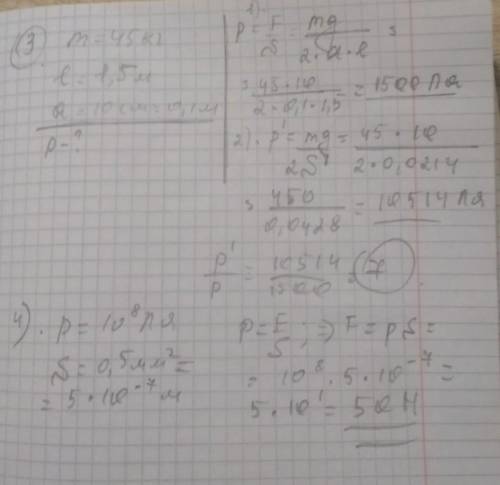 ③ m = 45 кг
l = 1,5 м
a = 10 см = 0,1 м
p - ?
1).
p = F/S = mg/(2·a·l) =
= 45·10/(2·0,1·1,5) = 1500 Па
2). p' = mg/(2S') = 45·10/(2·0,0214)
= 450/0,0428 = 10514 Па
p'/p = 10514/1500 = 7
4). p = 10⁸ Па
S = 0,5 мм² =
= 5·10⁻⁷ м
p = F/S; ⇒ F = pS =
= 10⁸ · 5·10⁻⁷ =
5·10¹ = 50 Н